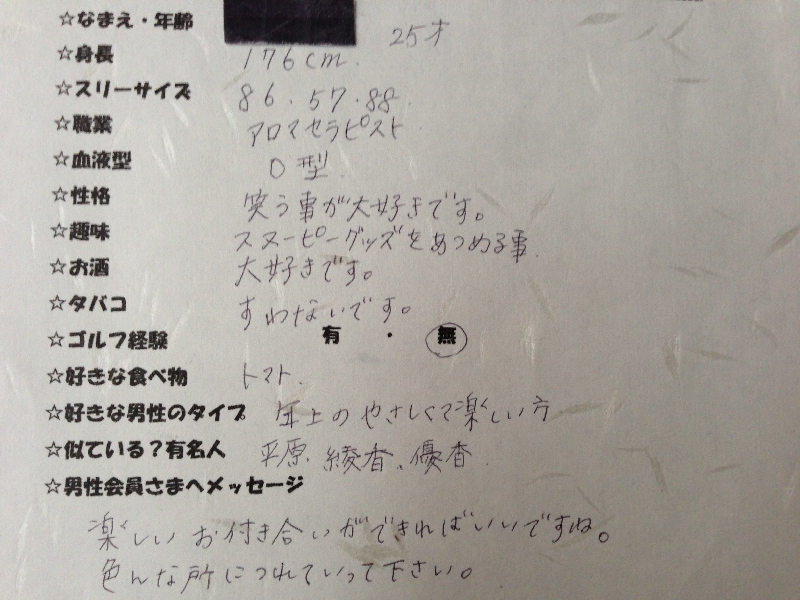 ☆なまえ・年齢 25才
☆身長 176cm.
☆スリーサイズ 86.57.88.
☆職業 アロマセラピスト
☆血液型 O型.
☆性格 笑う事が大好きです。
☆趣味 スヌーピーグッズをあつめる事.
☆お酒 大好きです。
☆タバコ すわないです。
☆ゴルフ経験 有・無
☆好きな食べ物 トマト.
☆好きな男性のタイプ 年上のやさしくて楽しい方
☆似ている?有名人 平原綾香、優香
☆男性会員さまへメッセージ
楽しいお付き合いができればいいですね。
色んな所につれていって下さい。